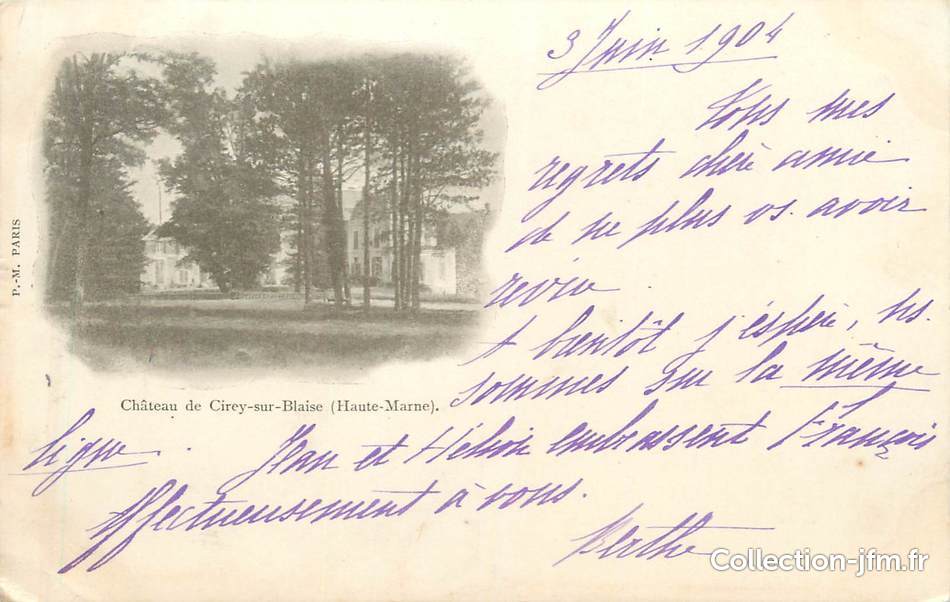 3 Juin 1904
P.-M. PARIS
Tous mes
regrets chère amie
de ne plus vs. avoir
revue
A bientôt j'espère, ns.
sommes sur la même
Château de Cirey-sur-Blaise (Haute-Marne).
ligne.
Jean et embrassent François
Affectueusement à vous.
Berthe
Collection-jfm.fr